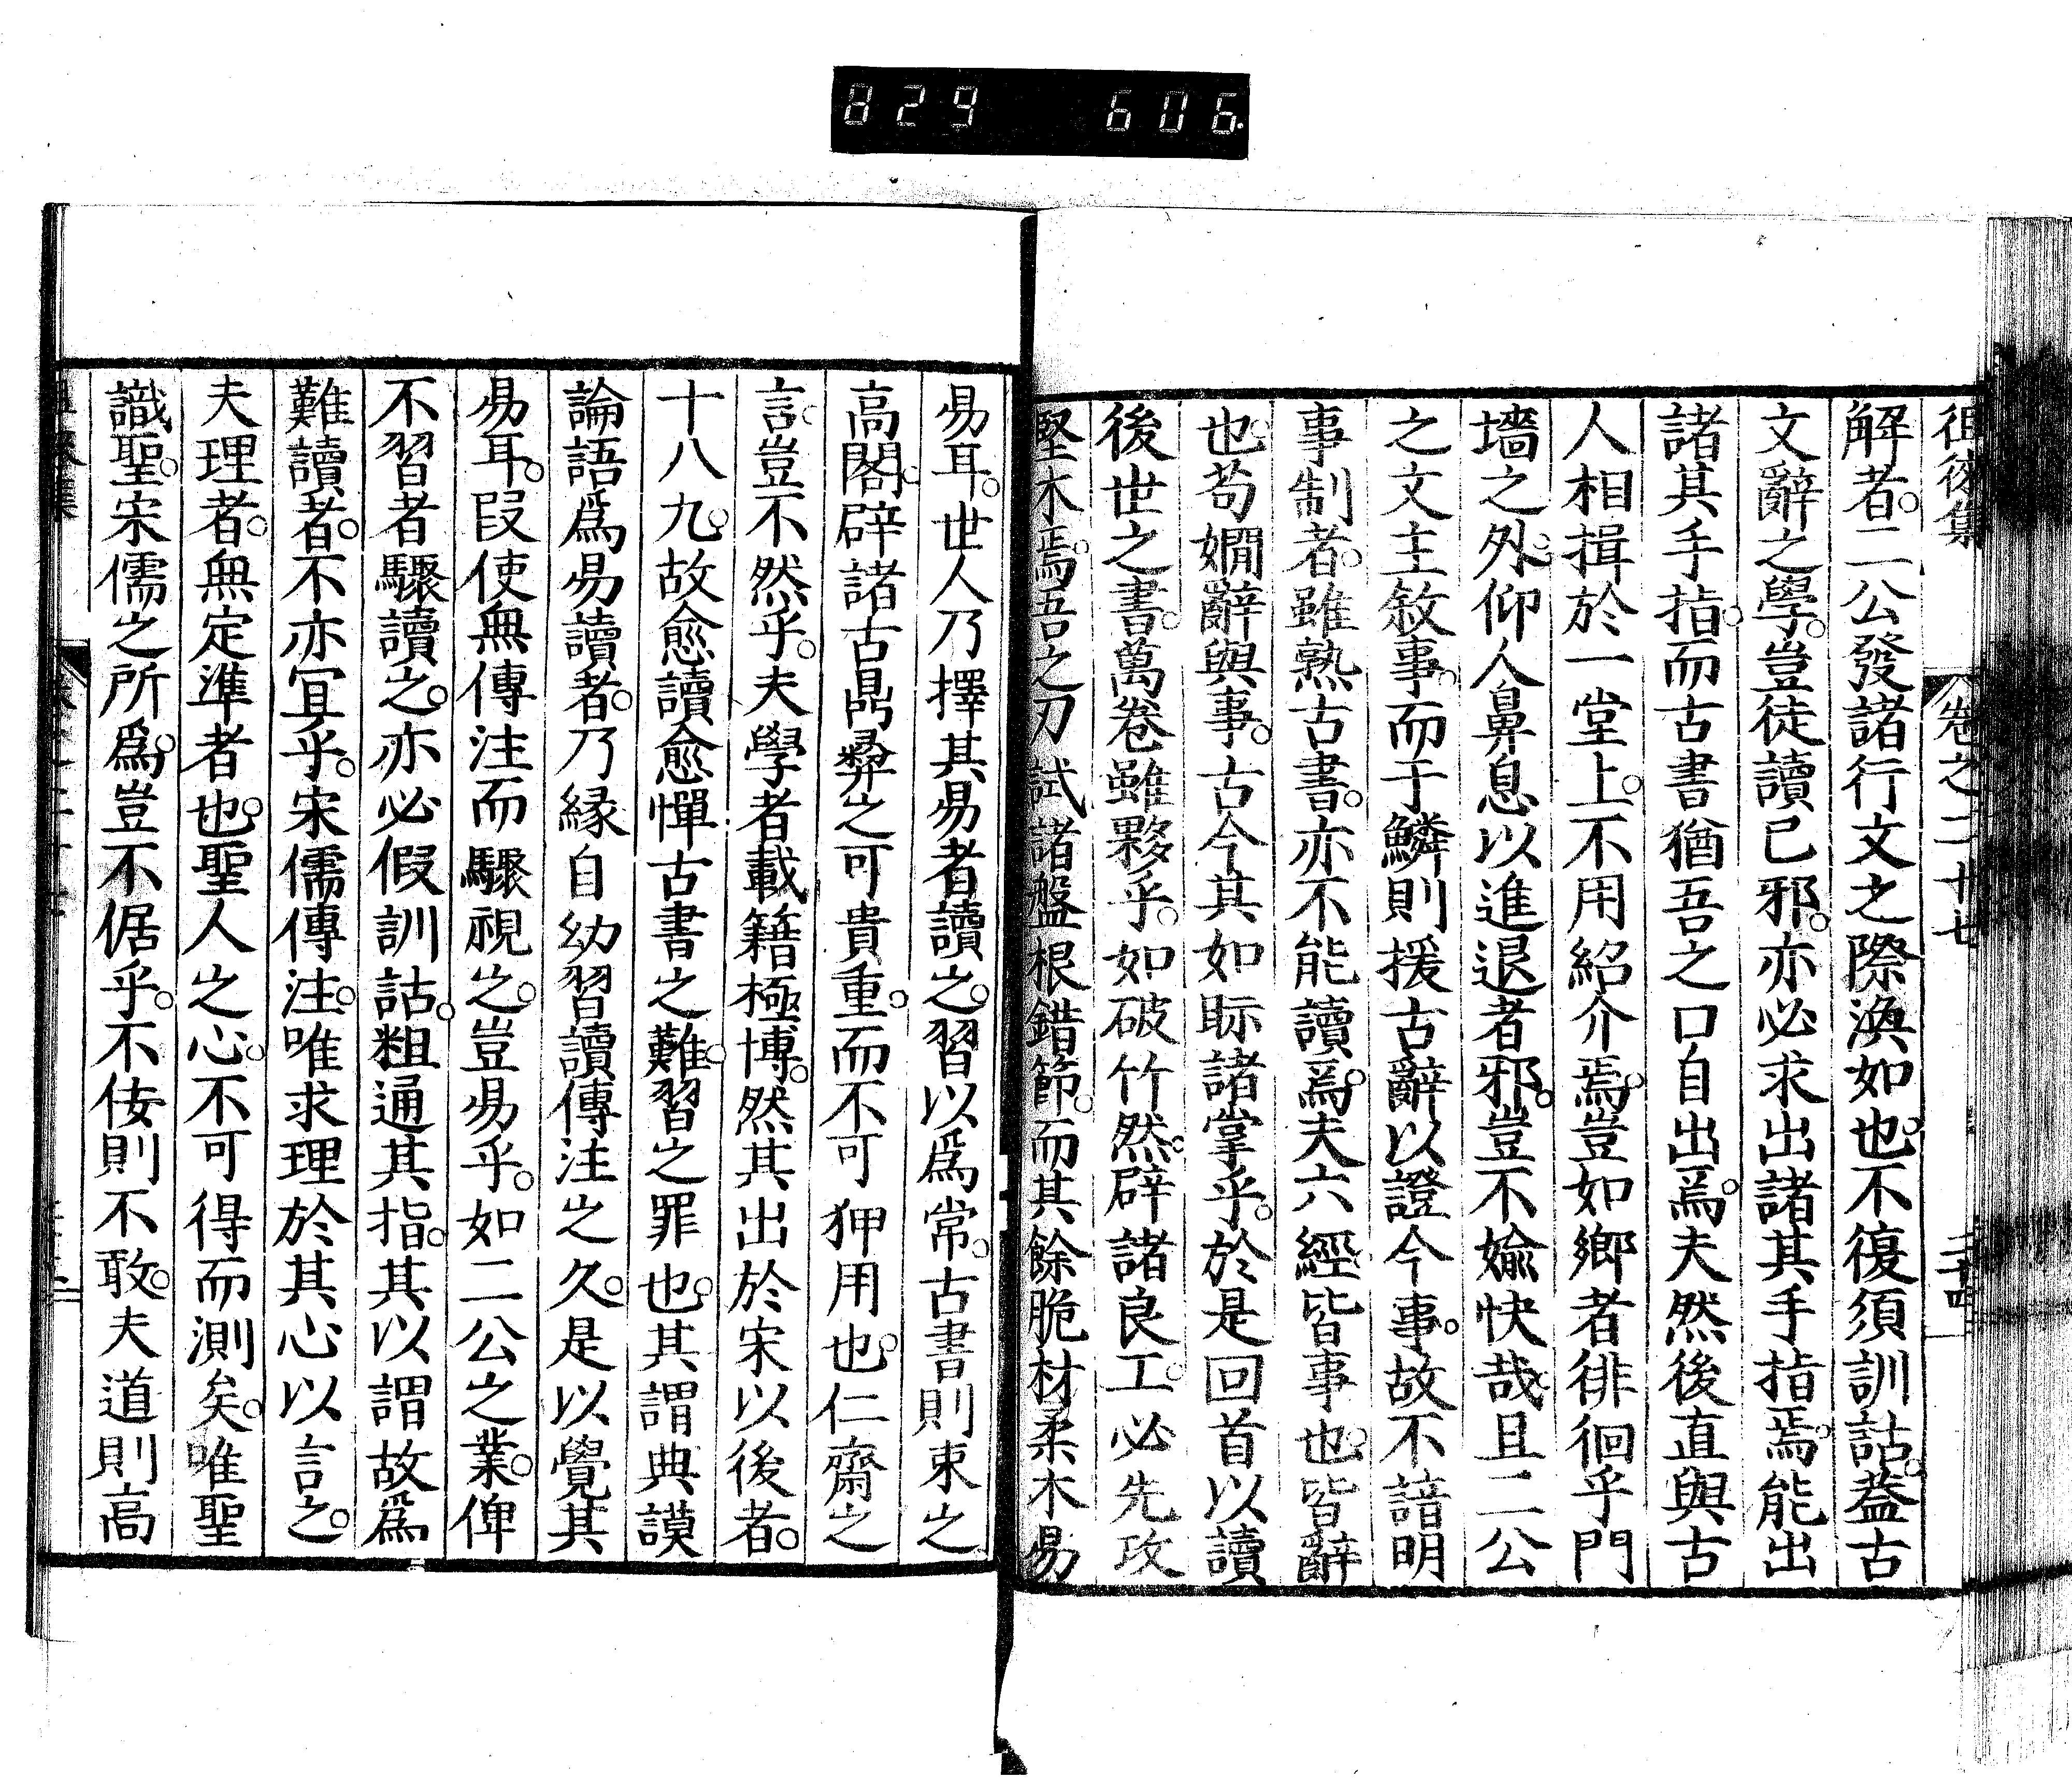 829 606.
徂徠集 卷之二十七 二十四
解者。二公發諸行文之際渙如也。不復須訓詁。葢古
文辭之學。豈徒讀已邪。亦必求出諸其手指焉。能出
諸其手指。而古書猶吾之口自出焉。夫然後直與古
人相揖於一堂上。不用紹介焉。豈如鄉者徘徊乎門
墻之外。仰人鼻息以進退者邪。豈不婾快哉。且二公
之文主敘事。而于鱗則援古辭以證今事。故不諳明
事制者。雖熟古書。亦不能讀焉。夫六經皆事也。皆辭
也。苟嫺辭與事。古今其如眎諸掌乎。於是回首以讀
後世之書。萬卷雖夥乎。如破竹然。辟諸良工。必先攻
堅木焉。吾之刀試諸盤根錯節。而其餘脆材柔木易
易耳。世人乃擇其易者讀之。習以爲常。古書則束之
高閣。辟諸古鼎彛之可貴重。而不可狎用也。仁齋之
言。豈不然乎。夫學者載籍極博。然其出於宋以後者。
十八九。故愈讀愈憚古書之難。習之罪也。其謂典謨
論語爲易讀者。乃緣自幼習讀傳注之久。是以覺其
易耳。叚使無傳注而驟視之。豈易乎。如二公之業。俾
不習者驟讀之。亦必假訓詁。粗通其指。其以謂故爲
難讀者。不亦冝乎。宋儒傳注。唯求理於其心以言之。
夫理者。無定準者也。聖人之心。不可得而測矣。唯聖
識聖。宋儒之所爲。豈不倨乎。不佞則不敢。夫道則高